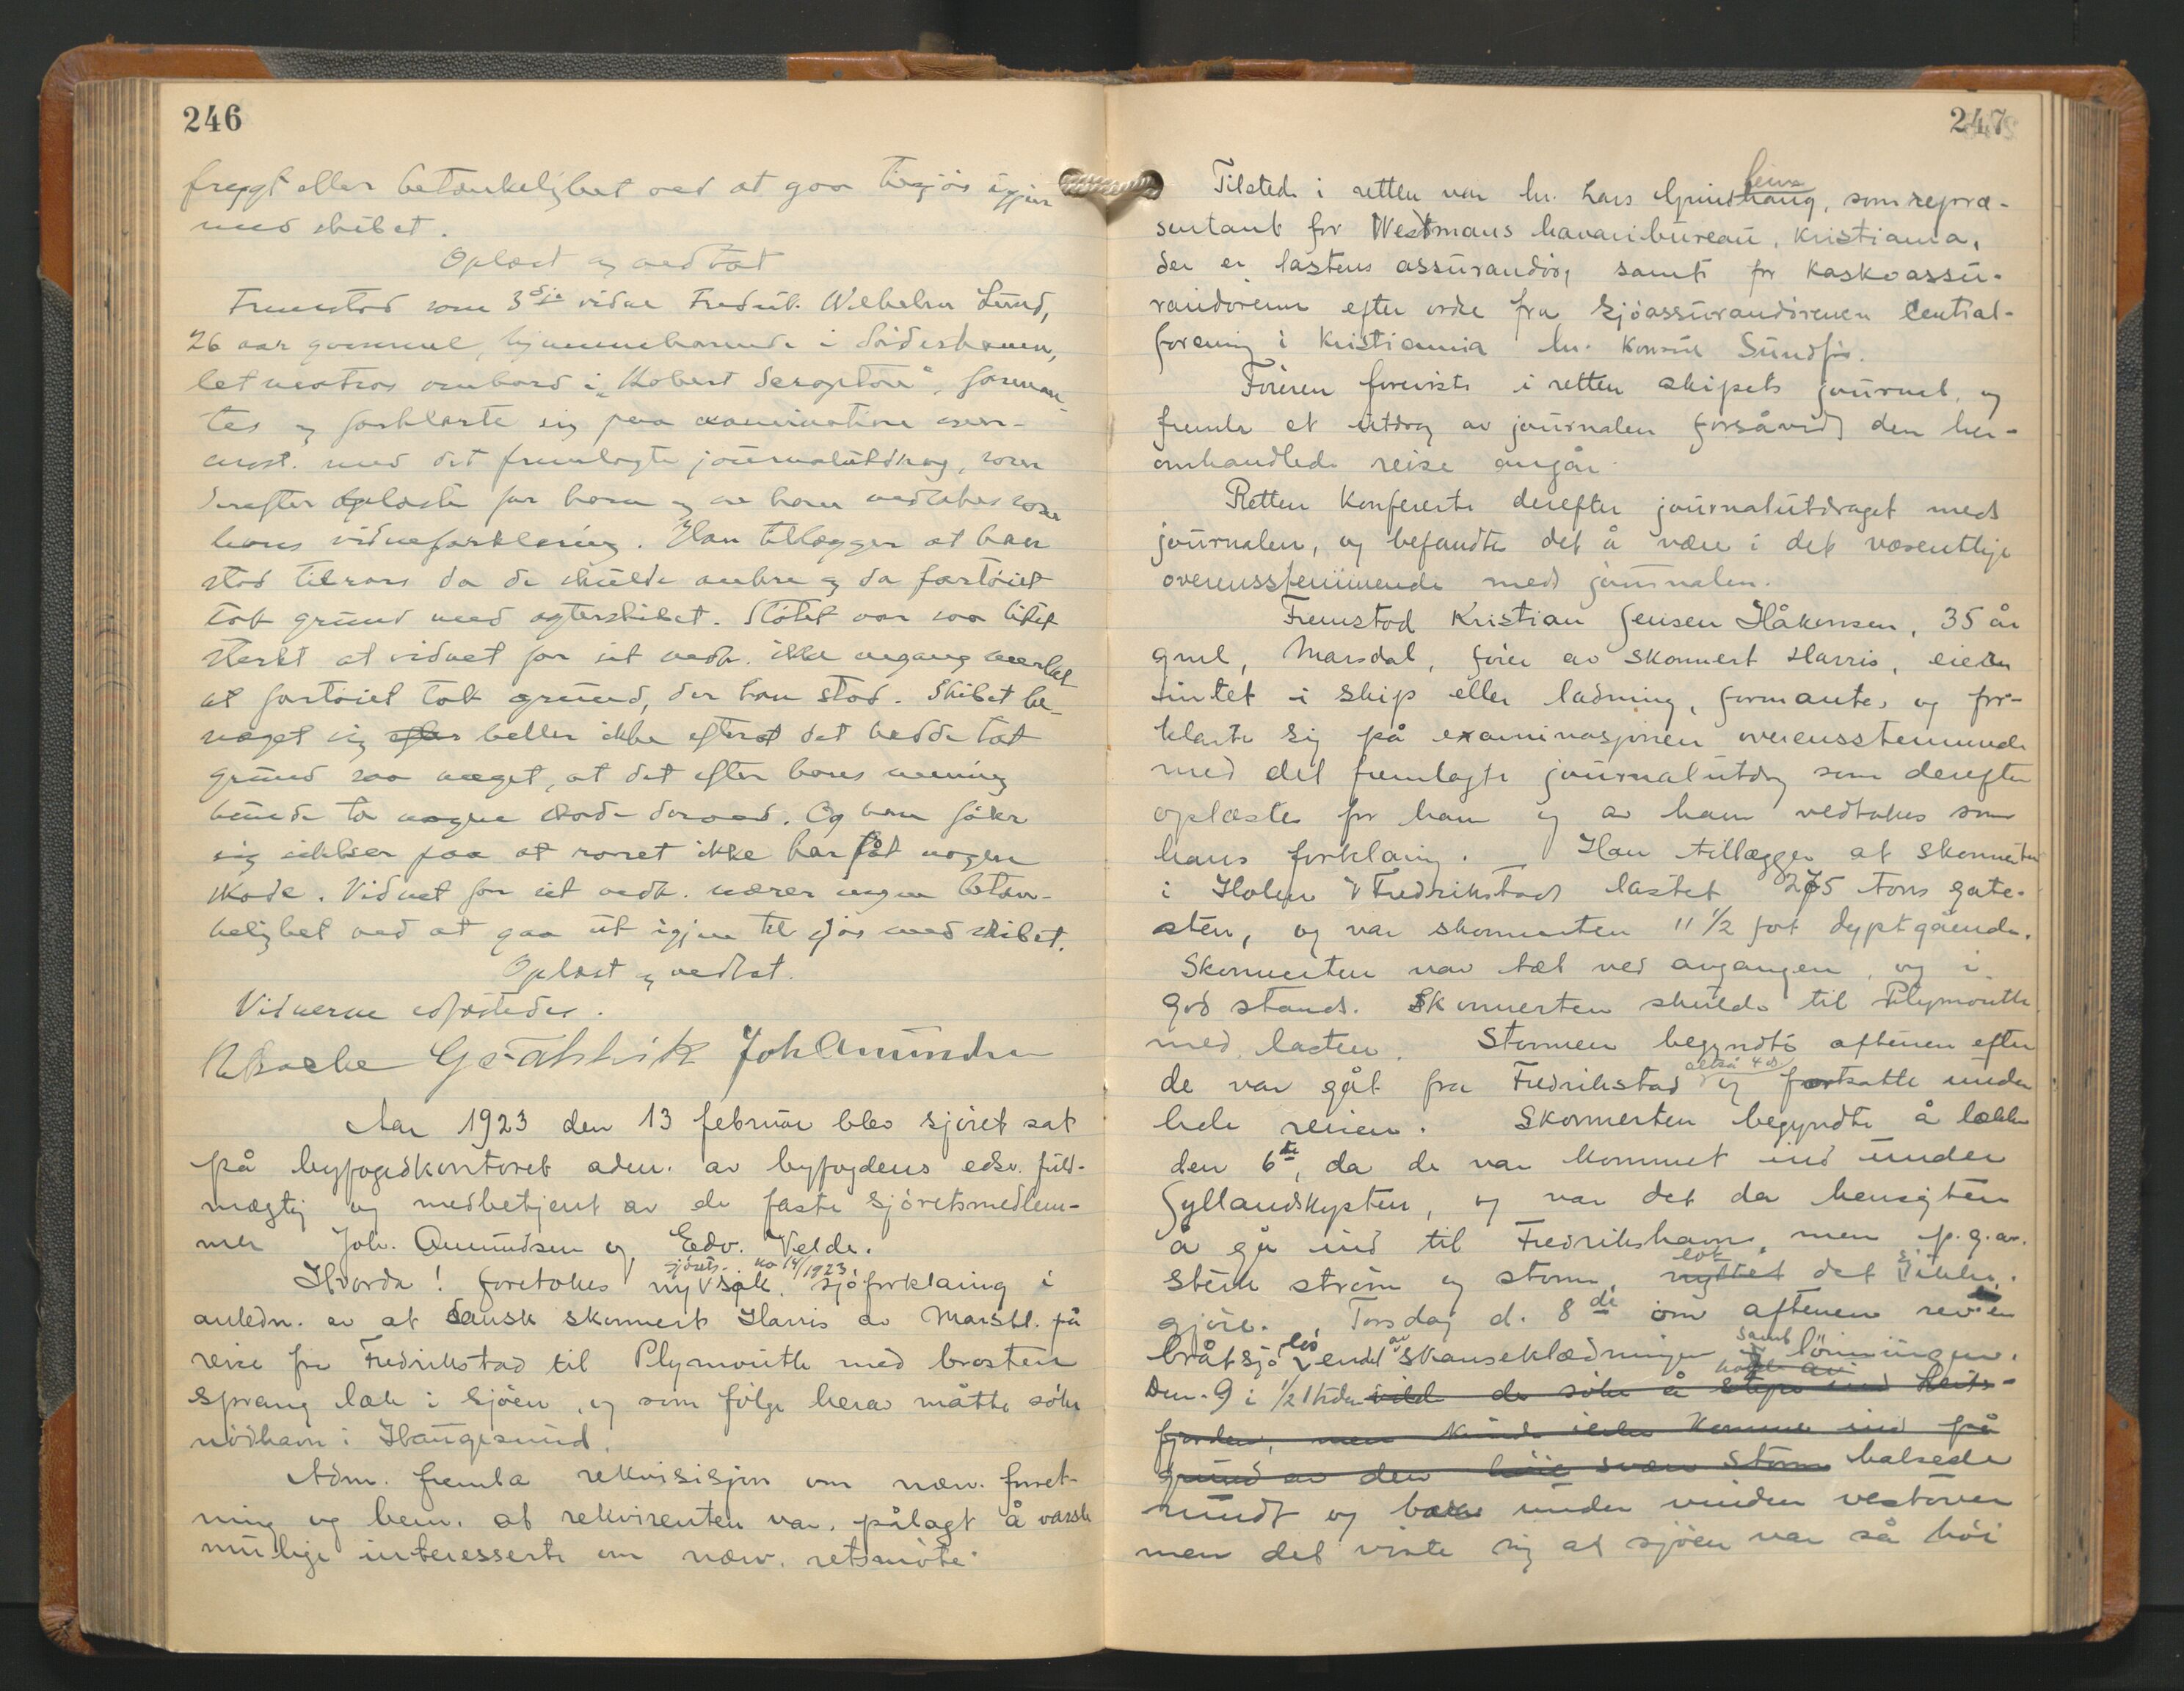 246
frygt eller betænkelighet ved at gaa tilsjös igjen
med skibet.
Oplæst og vedtat
Fremstod som 3dje vidne Fredrik Wilhelm Lund,
26 aar gammel, hjemmehørende i
letmatros ombord i "Robert", forman-
tes og forklarte sig paa examination over-
enst. med det fremlagte journalutdrag, som
derefter oplæstes for ham og av ham vedtokes som
hans vidneforklaring. Han tillægger at han
stod tilrors da de skulde ankre og da fartöiet
tok grund med agterskibet. Stötet var saa litet
sterkt at vidnet for sit vedk. ikke engang merket
at fartöiet tok grund, der han stod. Skibet be-
væget sig efter heller ikke efterat det hadde tat
grund saa meget, at det efter hans mening
kunde ta nogen skade derved. Og han föler
sig sikker paa at roret ikke har fåt nogen
skade. Vidnet for sit vedk. nærer ingen betæn-
kelighet ved at gaa ut igjen til sjös med skibet.
Oplæst og vedtat.
Vidnerne edfæstedes.
Joh Amundsen
Aar 1923 den 13 februar blev sjöret sat
på byfogedkontoret adm. av byfogdens edsv. full-
mægtig og medbetjent av de faste sjöretsmedlem-
mer Joh. Amundsen og Edv. Velde.
sjörets- no 14/1923.
Hvorda! foretokes ny sak. sjöforklaring i
anledn. av at dansk skonnert Harris av Marstl. på
reise fra Fredrikstad til Plymouth med brosten
sprang læk i sjöen, og som fölge herav måtte söke
nödhavn i Haugesund.
Adm. fremla rekvisisjon om nærv. forret-
ning og bem. at rekvirenten var pålagt å varsle
mulige interesserte om nærv. retsmöte.
247
Tilstede i retten var hr. Lars Grindhaug, som repræ-
sentant for Westmans havaribureau, Kristiania,
der er lastens assurandör, samt for kaskoassu-
randörerne efter ordre fra Sjöassurandörenes Central-
forening i Kristiania hr. konsul Sundför.
Föreren foreviste i retten skipets journal, og
fremla et utdrag av journalen forsåvidt den her-
omhandlede reise angår.
Retten konfererte derefter journalutdraget med
journalen, og befandtes det å være i det væsentlige
overensstemmende med journalen.
Fremstod Kristian Jensen Håkensen, 35 år
gml, Marsdal, förer av skonnert Harris, eieren
intet i skip eller ladning, formantes og for-
klarte sig på examinasjonen overensstemmende
med det fremlagte journalutdrag som derefter
oplæstes for ham og av ham vedtokes som
hans forklaring. Han tillægger at skonnerten
i Fredrikstad lastet 275 tons gate-
sten, og var skonnerten 11 1/2 fot dyptgående.
Skonnerten var tæt ved avgangen, og i
god stand. Skonnerten skulde til Plymouth
med lasten. Stormen begyndte aftenen efter
altså 4de
de var gåt fra Fredrikstad og fortsatte under
hele reisen. Skonnerten begyndte å lække
den 6te, da de var kommet ind under
Jyllandskysten, og var det da hensigten
å gå ind til Frederikshavn, men p.g.av.
lot sig
sterk ström og storm, nyttet det ikke
gjöre. Torsdag d. 8de om aftenen rev en
bråtsjö lös endel av skanseklædningen samt lönningen.
Den 9 i 1/2 1 tiden vilde de söke å
fjorden, men kunde ikke komme ind på
grund av den höie svære storm halsede
rundt og under vinden vestover
men det viste sig at sjöen var så höi